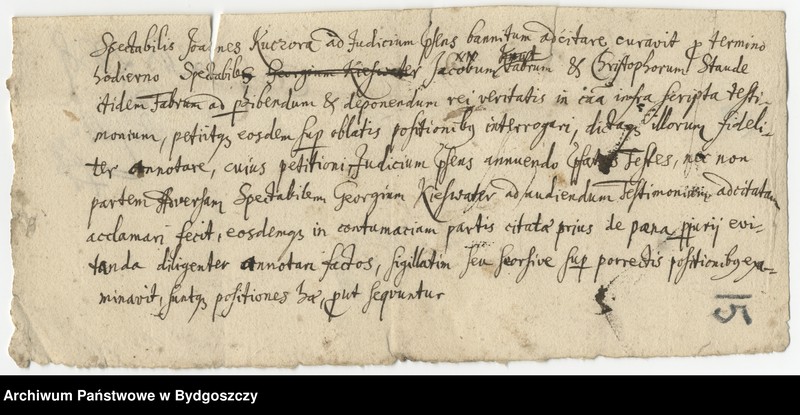 Spectabilis Joannes Kuczora ad Judicium p̃sens bannitum adcitare curavit p termino
hodierno Spectabiles Georgium Kieswater Jacobum Fabrum & Christophorum Staude
itidem Fabrum ad phibendum & deponendum rei veritatis in cãa infra scripta testi-
monium, petiitqȝ eosdem sup oblatis positionibȝ interrogari, dictaqȝ illorum fideli-
ter annotare, cuius petitioni Judicium p̃sens annuendo Testes, nec non
partem Adversam Spectabilem Georgium Kieswater ad audiendum Testimonium adcitatam
acclamari fecit, eosdemqȝ in contumaciam partis citatæ prius de pæna pjurij evi-
tanda diligenter annotari factos, sigillatim seu seorsive sup porrectis positionibȝ exa-
minavit, suntqȝ positiones hæ, put sequuntur
15
Archiwum Państwowe w Bydgoszczy